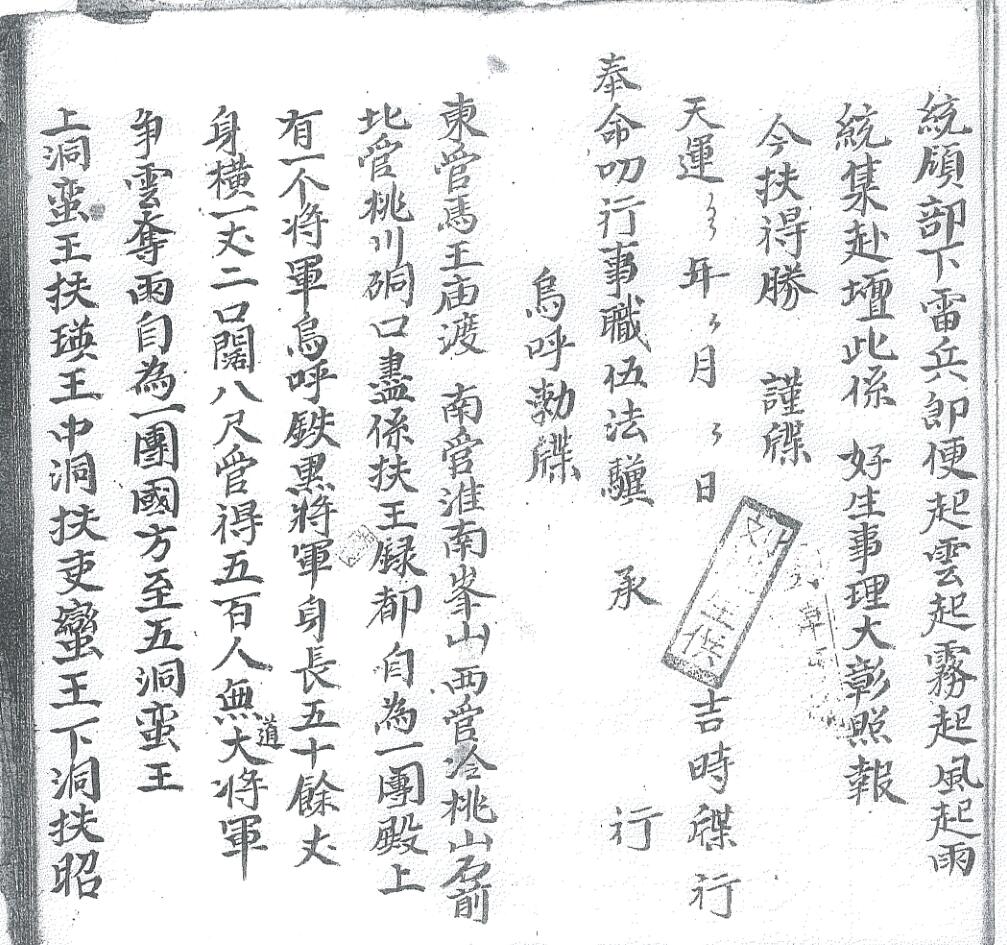 統領部下雷兵即便起雲起霧起風起雨
統集赴壇此係　好生事理大彰照報
今扶得勝　謹牒
天運〻年〻月〻日　吉時牒行
奉命叨行事職伍法驥　承　行
烏呼勅牒
東管馬王庙渡　南管淮南峯山西管冷桃山
北管桃川硐口盡係扶王録都自為一團殿上
有一个将軍烏呼鉄黒将軍身長五十餘丈
身横一丈二口闊八尺管得五百人無道大将軍
争雲奪雨自為一團國方至五洞蛮王
上洞蛮王扶瑛王中洞扶吏蠻王下洞扶昭